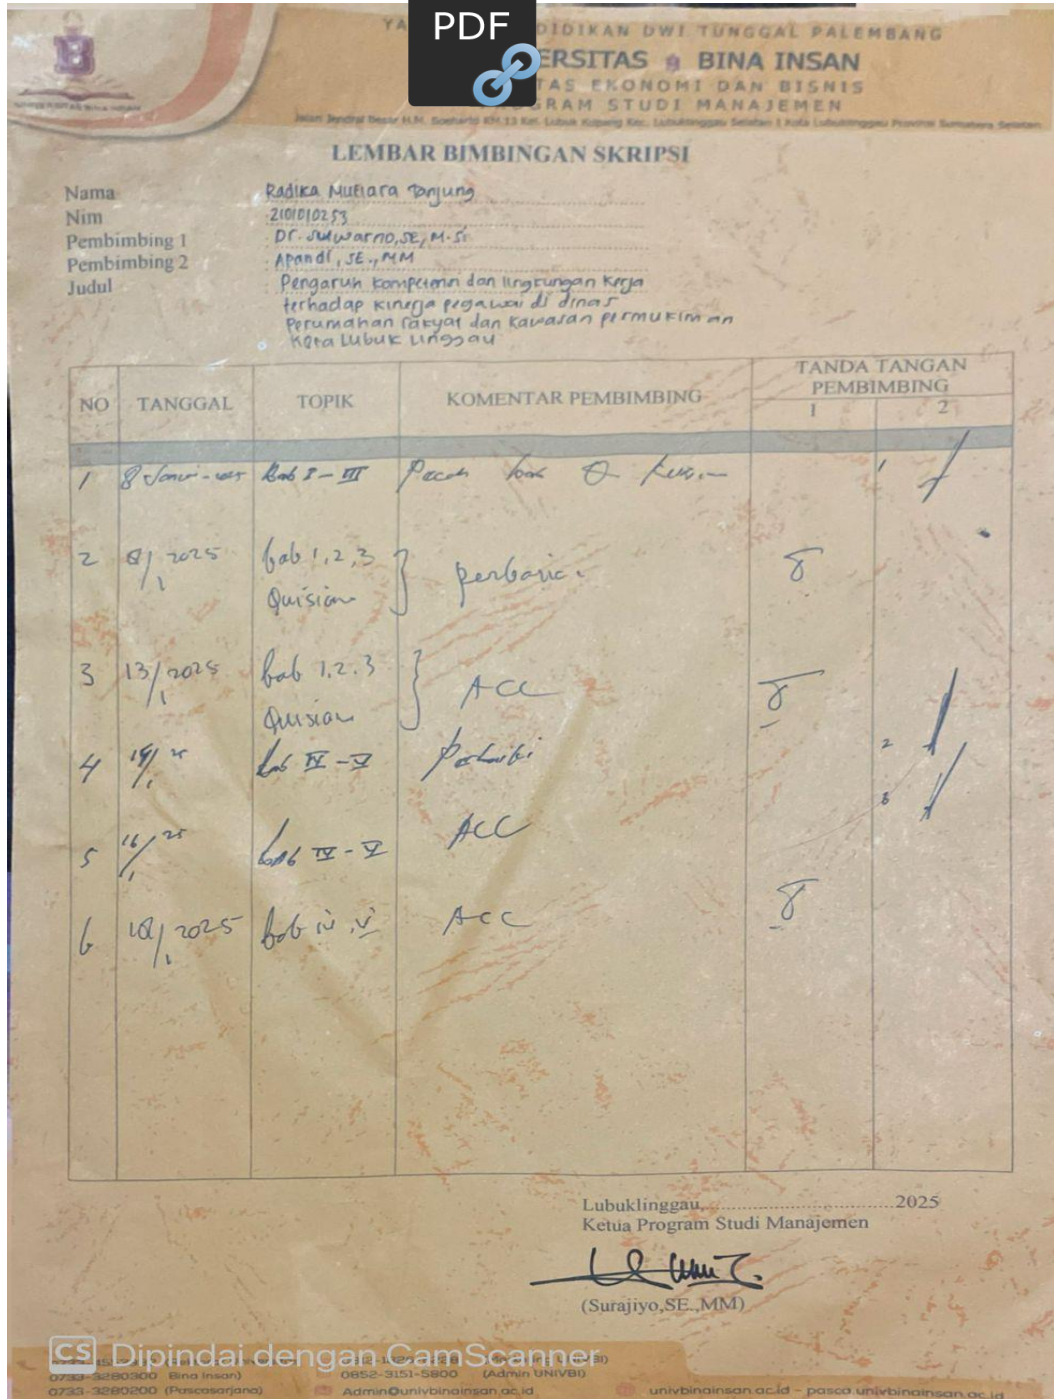 PDF
DIDIKAN DWI TUNGGAL PALEMBANG
ERSITAS BINA INSAN
TAS EKONOMI DAN BISNIS
GRAM STUDI MANAJEMEN
Jalan Jendral Besar H.M. Soeharto KM.13 Kel. Lubuk Kupang Kec. Lubuklinggau Selatan I Kota Lubuklinggau Provinsi Sumatera Selatan
UNIVERSITAS BINA INSAN
LEMBAR BIMBINGAN SKRIPSI
Nama Radika Mutiara Tanjung
Nim : 2101010253
Pembimbing 1 : Dr. Suwarno, SE, M.Si
Pembimbing 2 : Apandi, SE., MM
Judul : Pengaruh kompetensi dan lingkungan kerja
terhadap kinerja pegawai di dinas
Perumahan rakyat dan kawasan permukiman
Kota Lubuk Linggau
NO TANGGAL TOPIK KOMENTAR PEMBIMBING TANDA TANGAN PEMBIMBING
1 2
1 8 Bab I - III
2 8/1 2025 bab 1, 2, 3
Quision
3 13/1 2025 bab 1, 2, 3 ACC
Quision
4 bab IV - V
5 16/1 25 bab IV - V ACC
6 18/1 2025 bab iv, v ACC
Lubuklinggau,..................................2025
Ketua Program Studi Manajemen
(Surajiyo,SE.,MM)
CS Dipindai dengan CamScanner
0733-3280300 Bina Insan) 0852-3151-5800 (Admin UNIVBI)
0733-3280200 (Pascasarjana) Admin@univbinainsan.ac.id univbinainsan.ac.id - pasca.univbinainsan.ac.id